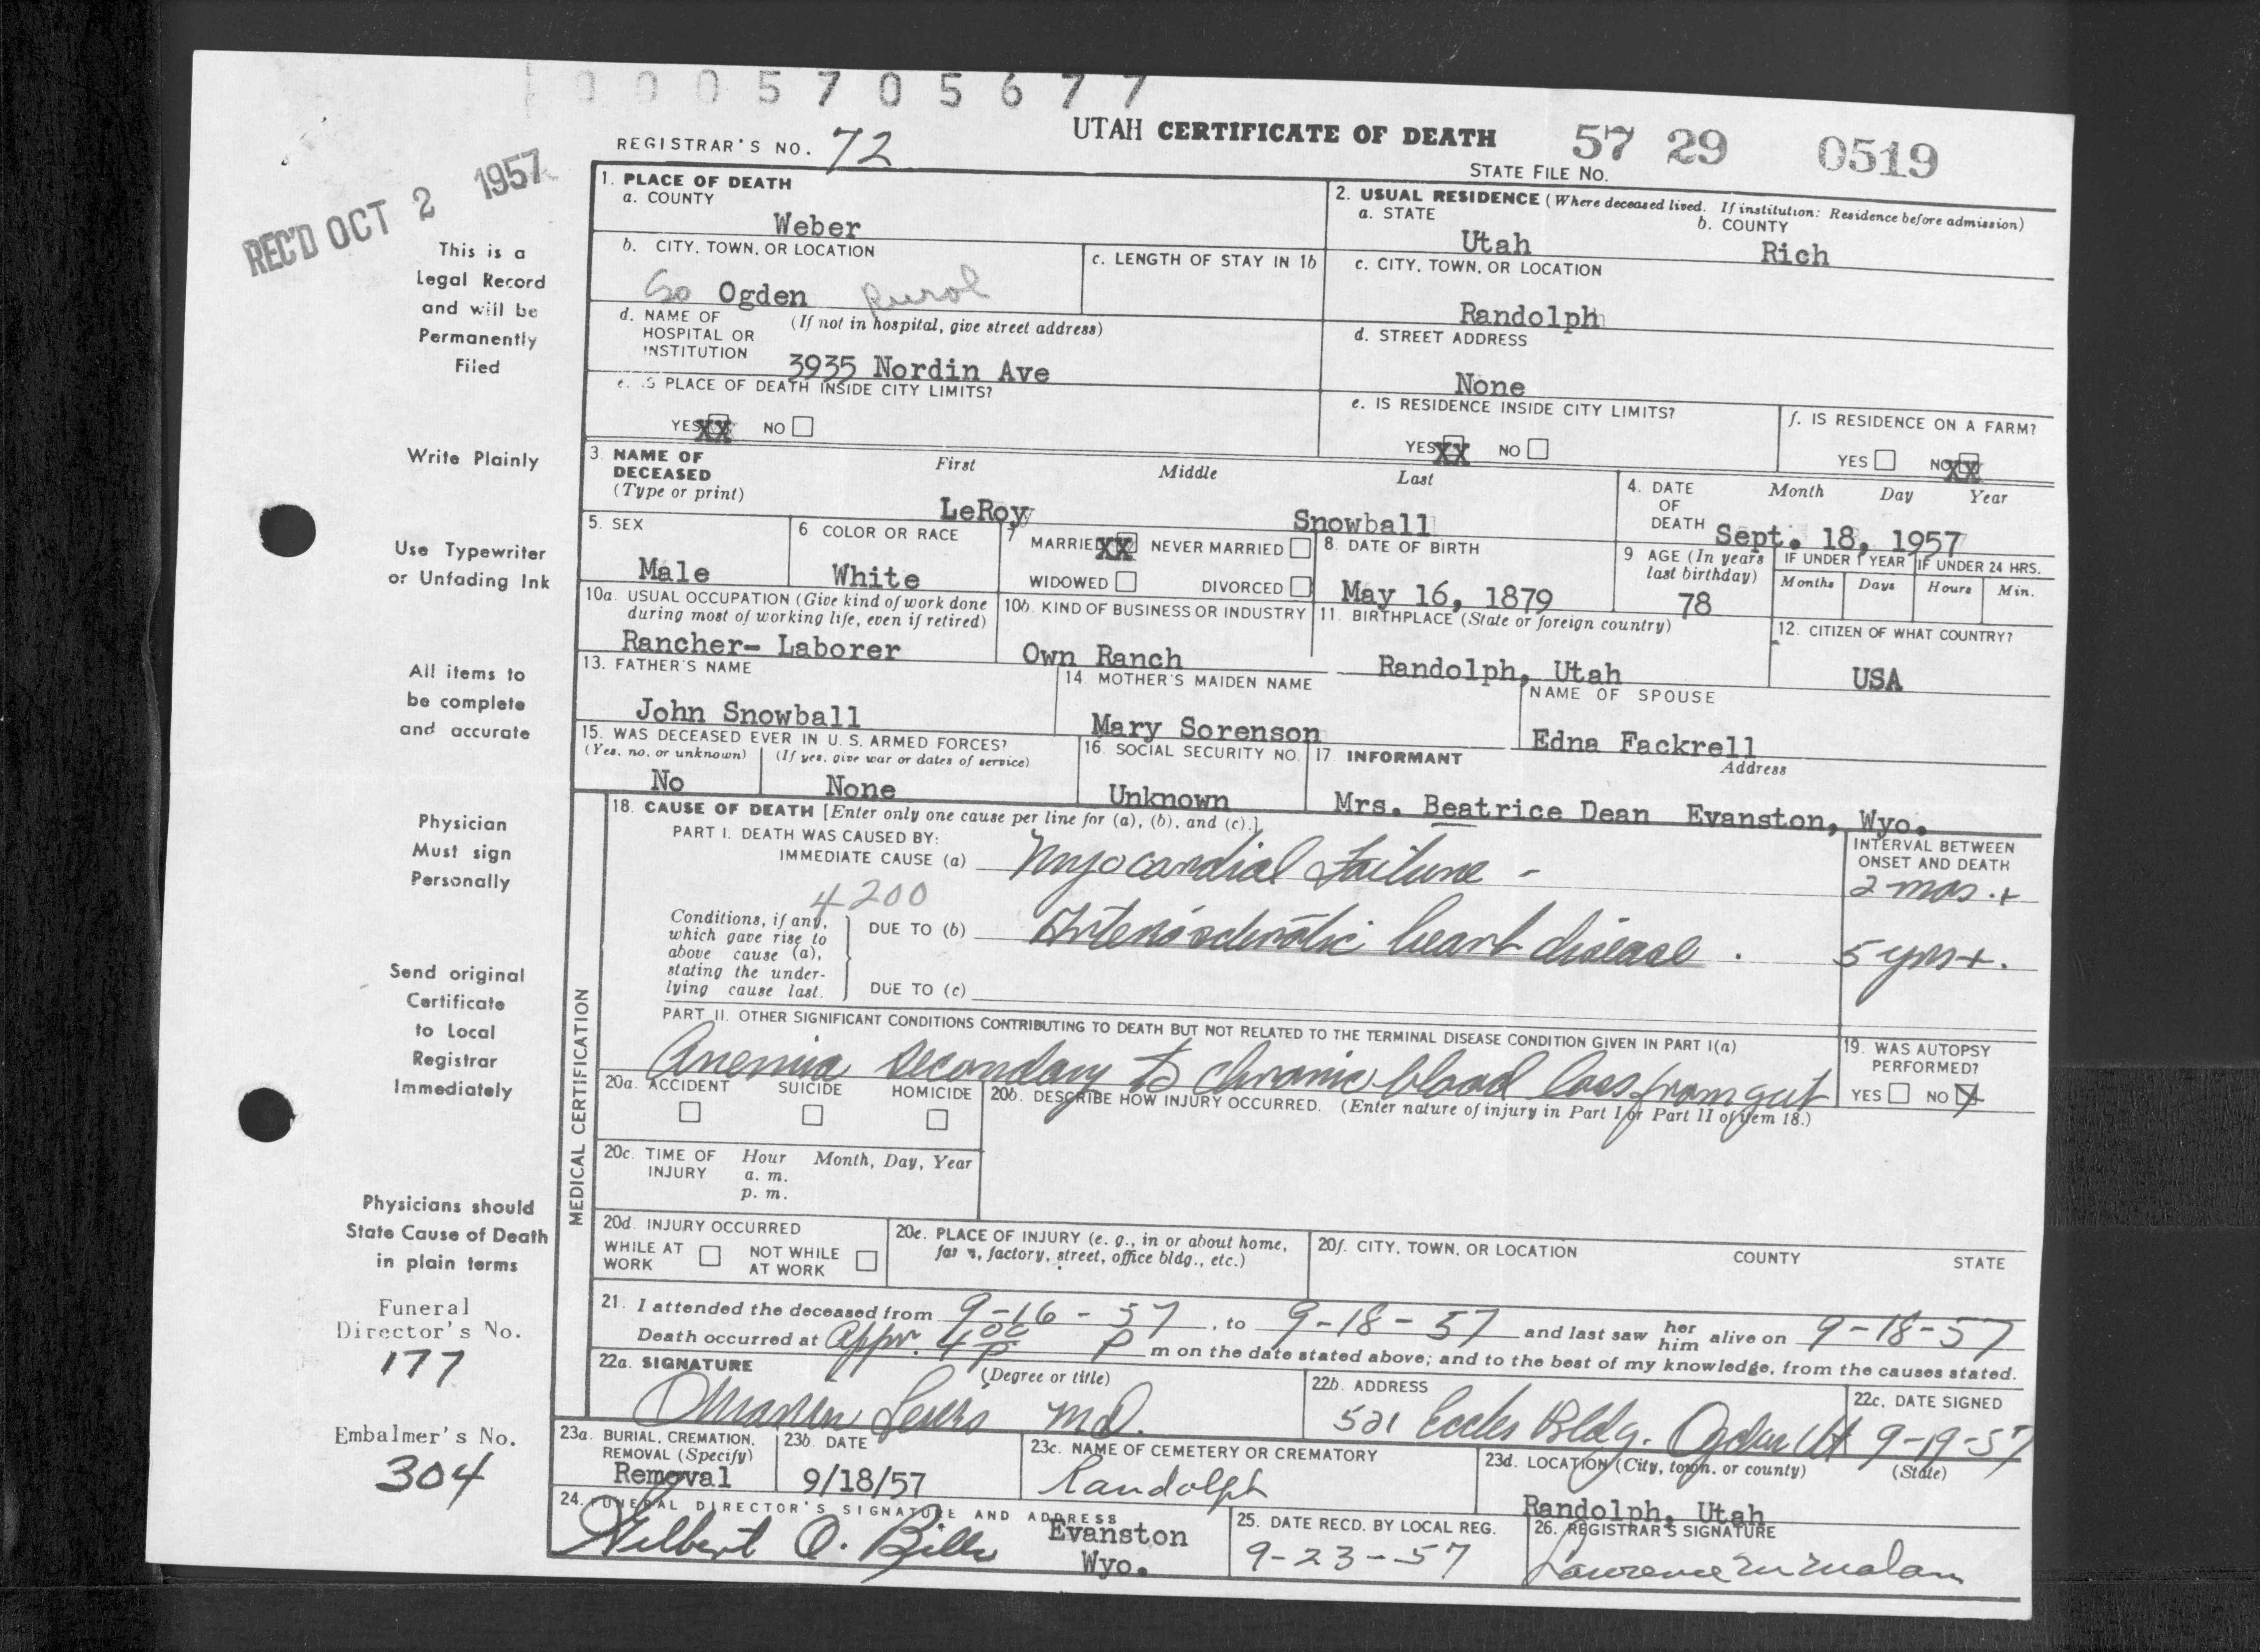 0005705677
REGISTRAR'S NO. 72
UTAH CERTIFICATE OF DEATH
57 29 0519
STATE FILE NO.
REC'D OCT 2 1957
This is a
Legal Record
and will be
Permanently
Filed
Write Plainly
Use Typewriter
or Unfading Ink
All items to
be complete
and accurate
Physician
Must sign
Personally
Send original
Certificate
to Local
Registrar
Immediately
Physicians should
State Cause of Death
in plain terms
Funeral
Director's No.
177
Embalmer's No.
304
1. PLACE OF DEATH
a. COUNTY
Weber
b. CITY, TOWN, OR LOCATION
So Ogden Rural
c. LENGTH OF STAY IN 1b
d. NAME OF HOSPITAL OR INSTITUTION (If not in hospital, give street address)
3935 Nordin Ave
e. IS PLACE OF DEATH INSIDE CITY LIMITS?
YES XX NO
2. USUAL RESIDENCE (Where deceased lived. If institution: Residence before admission)
a. STATE
Utah
b. COUNTY
Rich
c. CITY, TOWN, OR LOCATION
Randolph
d. STREET ADDRESS
None
e. IS RESIDENCE INSIDE CITY LIMITS?
YES XX NO
f. IS RESIDENCE ON A FARM?
YES NO XX
3. NAME OF DECEASED (Type or print)
First Middle Last
LeRoy Snowball
4. DATE OF DEATH Month Day Year
Sept. 18, 1957
5. SEX
Male
6 COLOR OR RACE
White
7 MARRIED XX NEVER MARRIED
WIDOWED DIVORCED
8. DATE OF BIRTH
May 16, 1879
9 AGE (In years last birthday)
78
IF UNDER 1 YEAR
Months Days
IF UNDER 24 HRS.
Hours Min.
10a. USUAL OCCUPATION (Give kind of work done during most of working life, even if retired)
Rancher- Laborer
10b. KIND OF BUSINESS OR INDUSTRY
Own Ranch
11. BIRTHPLACE (State or foreign country)
Randolph, Utah
12. CITIZEN OF WHAT COUNTRY?
USA
13. FATHER'S NAME
John Snowball
14. MOTHER'S MAIDEN NAME
Mary Sorenson
NAME OF SPOUSE
Edna Fackrell
15. WAS DECEASED EVER IN U. S. ARMED FORCES?
(Yes, no, or unknown) (If yes, give war or dates of service)
No None
16. SOCIAL SECURITY NO.
Unknown
17. INFORMANT Address
Mrs. Beatrice Dean Evanston, Wyo.
MEDICAL CERTIFICATION
18. CAUSE OF DEATH [Enter only one cause per line for (a), (b), and (c).]
PART I. DEATH WAS CAUSED BY:
IMMEDIATE CAUSE (a) Myocardial Failure -
INTERVAL BETWEEN ONSET AND DEATH
2 mos. +
4200
Conditions, if any, which gave rise to above cause (a), stating the underlying cause last.
DUE TO (b) Arteriosclerotic heart disease .
5 yrs +.
DUE TO (c)
PART II. OTHER SIGNIFICANT CONDITIONS CONTRIBUTING TO DEATH BUT NOT RELATED TO THE TERMINAL DISEASE CONDITION GIVEN IN PART I(a)
Anemia secondary to chronic blood loss from gut
19. WAS AUTOPSY PERFORMED?
YES NO X
20a. ACCIDENT SUICIDE HOMICIDE
20b. DESCRIBE HOW INJURY OCCURRED. (Enter nature of injury in Part I or Part II of item 18.)
20c. TIME OF INJURY Hour Month, Day, Year
a. m.
p. m.
20d. INJURY OCCURRED
WHILE AT WORK NOT WHILE AT WORK
20e. PLACE OF INJURY (e. g., in or about home, farm, factory, street, office bldg., etc.)
20f. CITY, TOWN, OR LOCATION COUNTY STATE
21. I attended the deceased from 9-16-57, to 9-18-57 and last saw her him alive on 9-18-57
Death occurred at appr. 4 00 P P m on the date stated above; and to the best of my knowledge, from the causes stated.
22a. SIGNATURE (Degree or title)
M.D.
22b. ADDRESS
521 Eccles Bldg. Ogden Ut
22c. DATE SIGNED
9-19-57
23a. BURIAL, CREMATION, REMOVAL (Specify)
Removal
23b. DATE
9/18/57
23c. NAME OF CEMETERY OR CREMATORY
Randolph
23d. LOCATION (City, town, or county) (State)
Randolph, Utah
24. FUNERAL DIRECTOR'S SIGNATURE AND ADDRESS
Wilbert O. Bills Evanston
Wyo.
25. DATE RECD. BY LOCAL REG.
9-23-57
26. REGISTRAR'S SIGNATURE
Lawrence M Malan